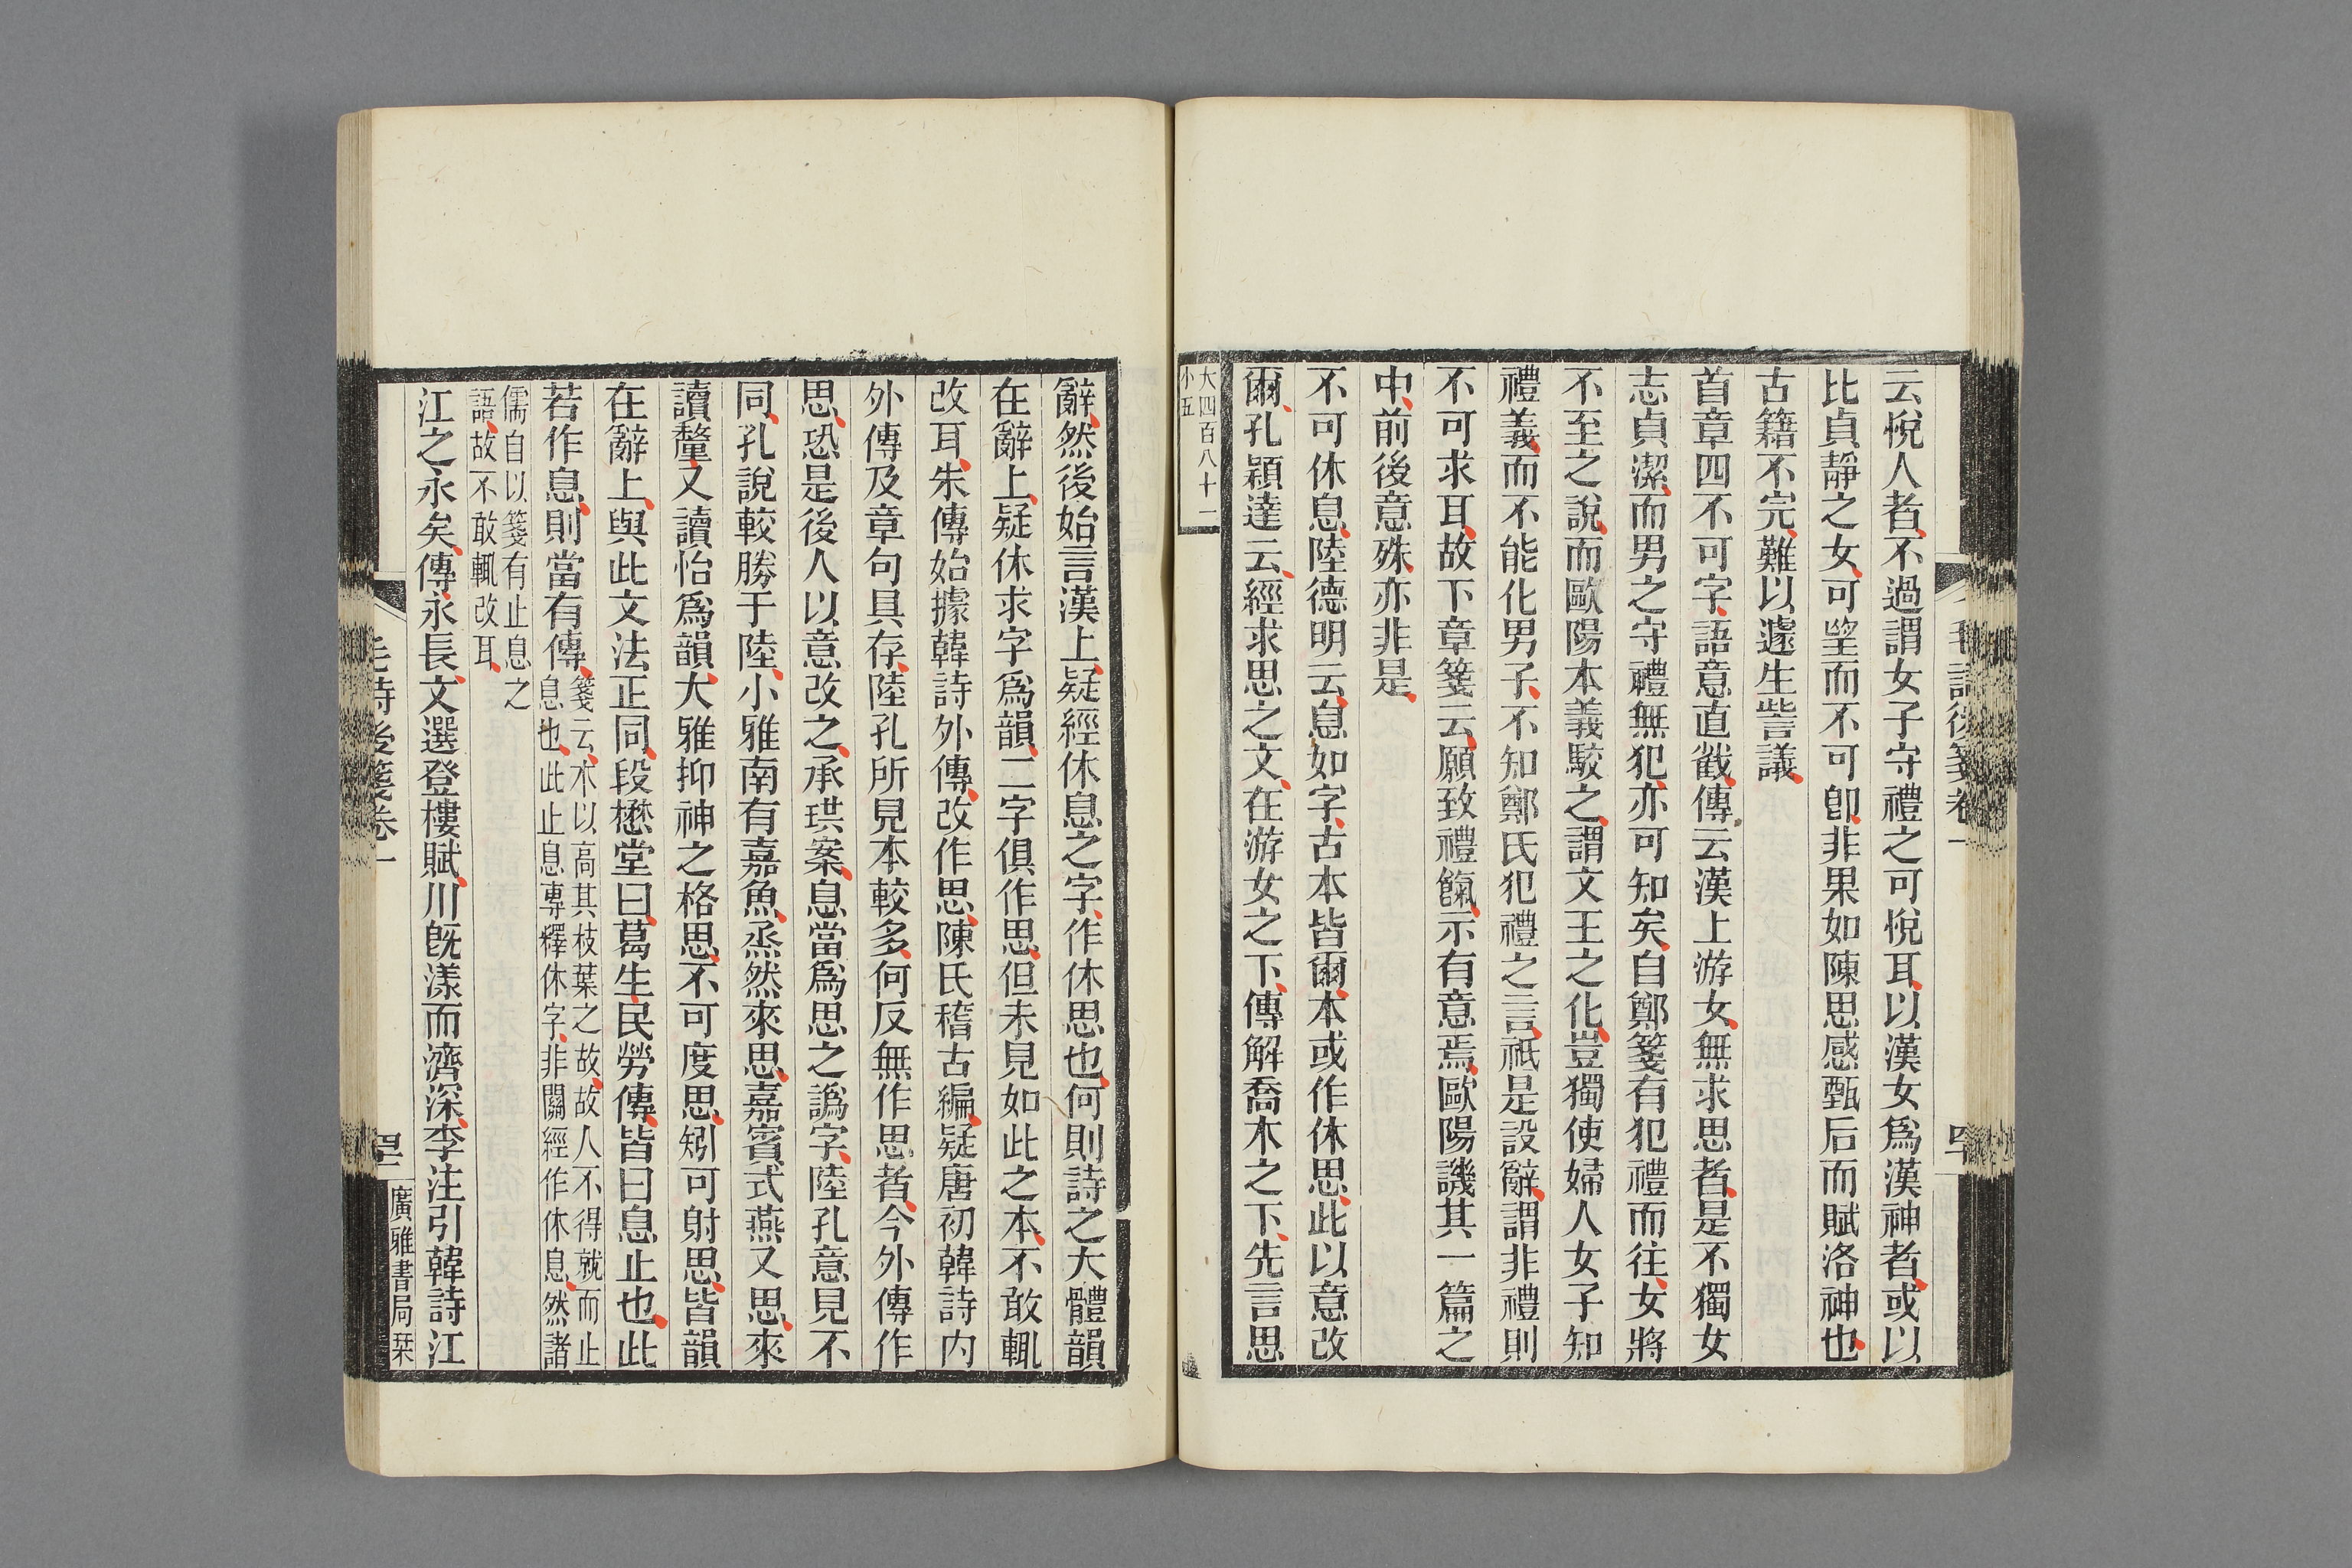 云悅人者不過謂女子守禮之可悅耳以漢女爲漢神者或以
比貞靜之女可望而不可卽非果如陳思感甄后而賦洛神也
古籍不完難以遽生訾議
首章四不可字語意直截傳云漢上游女無求思者是不獨女
志貞潔而男之守禮無犯亦可知矣自鄭箋有犯禮而往女將
不至之說而歐陽本義駁之謂文王之化豈獨使婦人女子知
禮義而不能化男子不知鄭氏犯禮之言祇是設辭謂非禮則
不可求耳故下章箋云願致禮餼示有意焉歐陽譏其一篇之
中前後意殊亦非是
不可休息陸德明云息如字古本皆爾本或作休思此以意改
爾孔穎達云經求思之文在游女之下傳解喬木之下先言思
大四百八十一
小五
毛詩後箋卷一
辭然後始言漢上疑經休息之字作休思也何則詩之大體韻
在辭上疑休求字爲韻二字俱作思但未見如此之本不敢輒
改耳朱傳始據韓詩外傳改作思陳氏稽古編疑唐初韓詩內
外傳及章句具存陸孔所見本較多何反無作思者今外傳作
思恐是後人以意改之承珙案息當爲思之譌字陸孔意見不
同孔說較勝于陸小雅南有嘉魚烝然來思嘉賓式燕又思來
讀釐又讀怡爲韻大雅抑神之格思不可度思矧可射思皆韻
在辭上與此文法正同段懋堂曰葛生民勞傳皆曰息止也此
若作息則當有傳
箋云木以高其枝葉之故故人不得就而止
息也此止息專釋休字非關經作休息然諸
儒自以箋有止息之
語故不敢輒改耳
江之永矣傳永長文選登樓賦川旣漾而濟深李注引韓詩江
毛詩後箋卷一
廣雅書局栞